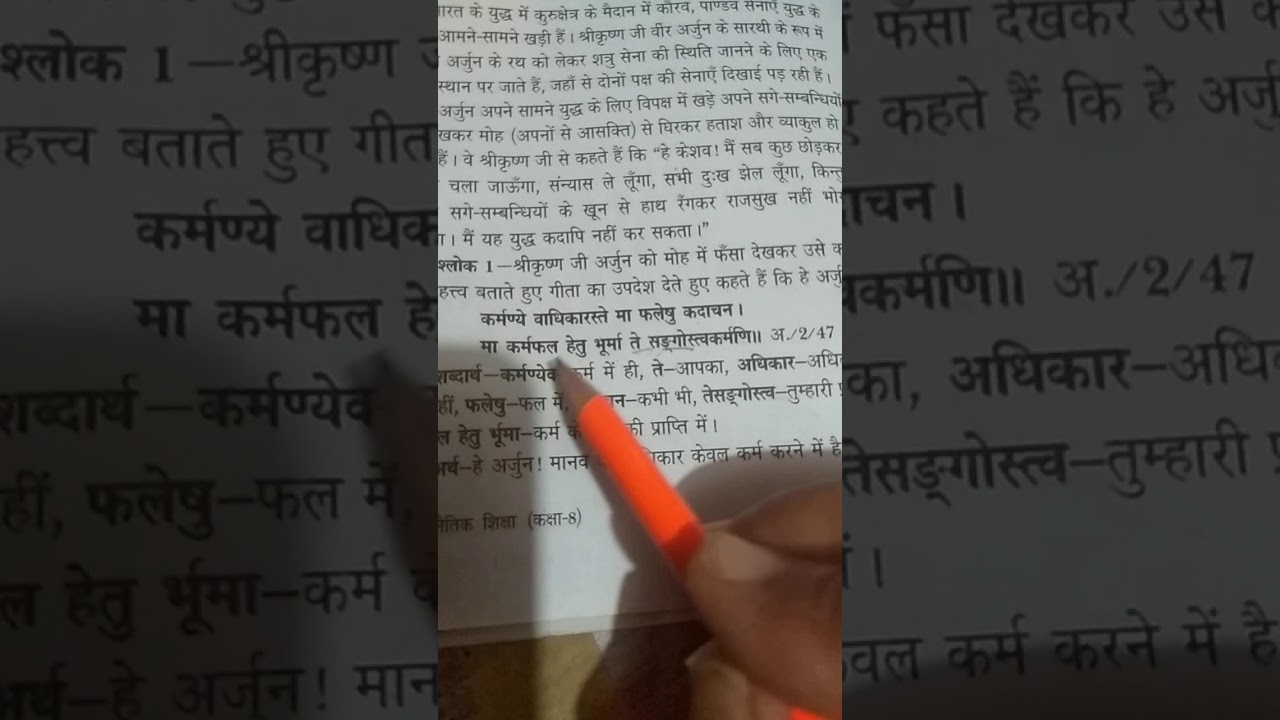 भारत के युद्ध में कुरुक्षेत्र के मैदान में कौरव, पाण्डव सेनाएँ युद्ध के
आमने-सामने खड़ी हैं। श्रीकृष्ण जी वीर अर्जुन के सारथी के रूप में
अर्जुन के रथ को लेकर शत्रु सेना की स्थिति जानने के लिए एक
स्थान पर जाते हैं, जहाँ से दोनों पक्ष की सेनाएँ दिखाई पड़ रही हैं।
अर्जुन अपने सामने युद्ध के लिए विपक्ष में खड़े अपने सगे-सम्बन्धियों
खकर मोह (अपनों से आसक्ति) से घिरकर हताश और व्याकुल हो
हैं। वे श्रीकृष्ण जी से कहते हैं कि “हे केशव! मैं सब कुछ छोड़कर
चला जाऊँगा, संन्यास ले लूँगा, सभी दुःख झेल लूँगा, किन्तु
सगे-सम्बन्धियों के खून से हाथ रँगकर राजसुख नहीं भो
। मैं यह युद्ध कदापि नहीं कर सकता।”
श्लोक 1—श्रीकृष्ण जी अर्जुन को मोह में फँसा देखकर उसे क
हत्त्व बताते हुए गीता का उपदेश देते हुए कहते हैं कि हे अर्जु
कर्मण्ये वाधिकारस्ते मा फलेषु कदाचन।
मा कर्मफल हेतु र्भूमा ते सङ्गोस्त्वकर्मणि॥ अ./2/47
शब्दार्थ—कर्मण्येव कर्म में ही, ते—आपका, अधिकार—अधि
हीं, फलेषु—फल में, न—कभी भी, तेसङ्गोस्त्व—तुम्हारी
ल हेतु र्भूमा—कर्म की प्राप्ति में।
अर्थ—हे अर्जुन! मानव धिकार केवल कर्म करने में है
नैतिक शिक्षा (कक्षा-8)